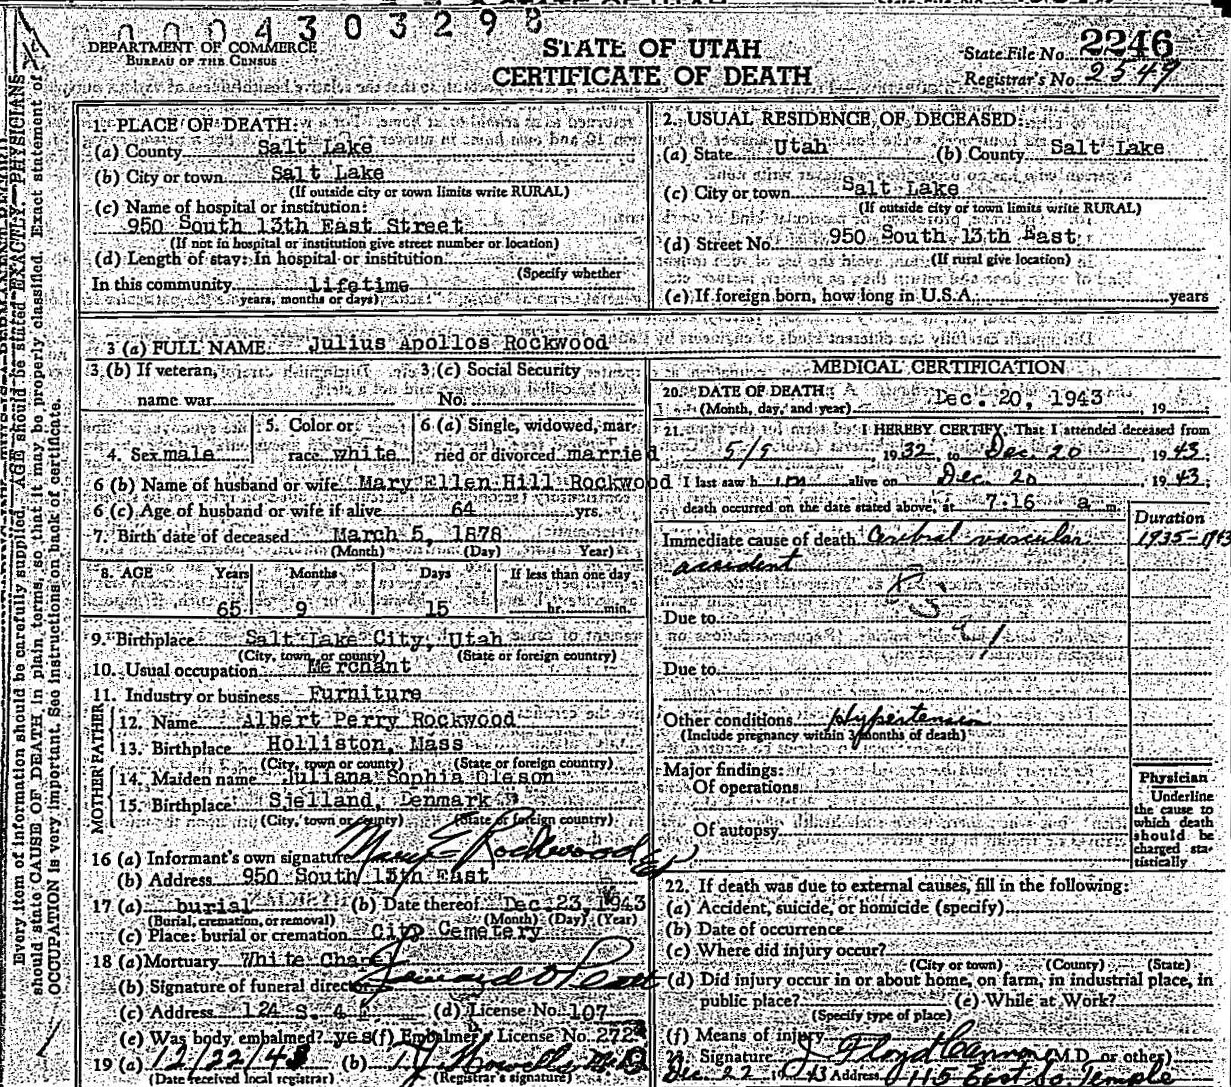 0004303298
DEPARTMENT OF COMMERCE
BUREAU OF THE CENSUS
STATE OF UTAH
CERTIFICATE OF DEATH
State File No. 2246
Registrar's No. 2549
Every item of information should be carefully supplied. AGE should be stated EXACTLY. PHYSICIANS
should state CAUSE OF DEATH in plain terms, so that it may be properly classified. Exact statement of
OCCUPATION is very important. See instructions on back of certificate.
1. PLACE OF DEATH:
(a) County Salt Lake
(b) City or town Salt Lake
(If outside city or town limits write RURAL)
(c) Name of hospital or institution:
950 South 13th East Street
(If not in hospital or institution give street number or location)
(d) Length of stay: In hospital or institution
(Specify whether
In this community lifetime
years, months or days)
2. USUAL RESIDENCE OF DECEASED:
(a) State Utah (b) County Salt Lake
(c) City or town Salt Lake
(If outside city or town limits write RURAL)
(d) Street No. 950 South 13th East
(If rural give location)
(e) If foreign born, how long in U.S.A. years
3 (a) FULL NAME Julius Apollos Rockwood
3 (b) If veteran, 3 (c) Social Security
name war No.
4. Sex male 5. Color or race white 6 (a) Single, widowed, married or divorced married
6 (b) Name of husband or wife Mary Ellen Hill Rockwood
6 (c) Age of husband or wife if alive 64 yrs.
7. Birth date of deceased March 5, 1878
(Month) (Day) Year)
8. AGE Years Months Days If less than one day
65 9 15 hr. min.
9. Birthplace Salt Lake City, Utah
(City, town, or county) (State or foreign country)
10. Usual occupation Merchant
11. Industry or business Furniture
FATHER
12. Name Albert Perry Rockwood
13. Birthplace Holliston, Mass
(City, town or county) (State or foreign country)
MOTHER
14. Maiden name Juliana Sophia Oleson
15. Birthplace Sjelland, Denmark
(City, town or county) (State or foreign country)
16 (a) Informant's own signature Mary E Rockwood
(b) Address 950 South 13th East
17 (a) burial (b) Date thereof Dec 23 1943
(Burial, cremation, or removal) (Month) (Day) (Year)
(c) Place: burial or cremation City Cemetery
18 (a) Mortuary White Chapel
(b) Signature of funeral director
(c) Address 124 S. 4 E (d) License No. 107
(e) Was body embalmed? yes (f) Embalmer's License No. 272
19 (a) 12/22/43 (b)
(Date received local registrar) (Registrar's signature)
MEDICAL CERTIFICATION
20. DATE OF DEATH: Dec. 20, 1943, 19
(Month, day, and year)
21. I HEREBY CERTIFY, That I attended deceased from
5/5, 1932, to Dec. 20, 1943.
I last saw him alive on Dec. 20, 1943;
death occurred on the date stated above, at 7:16 a m.
Duration
Immediate cause of death Cerebral vascular 1935-1943
accident
Due to
Due to
Other conditions Hypertension
(Include pregnancy within 3 months of death)
Major findings:
Of operations
Of autopsy
Physician
Underline
the cause to
which death
should be
charged sta-
tistically
22. If death was due to external causes, fill in the following:
(a) Accident, suicide, or homicide (specify)
(b) Date of occurrence
(c) Where did injury occur?
(City or town) (County) (State)
(d) Did injury occur in or about home, on farm, in industrial place, in
public place? (e) While at Work?
(Specify type of place)
(f) Means of injury
23. Signature J Floyd Cannon (M.D. or other)
Dec 22 1943 Address 115 East So Temple